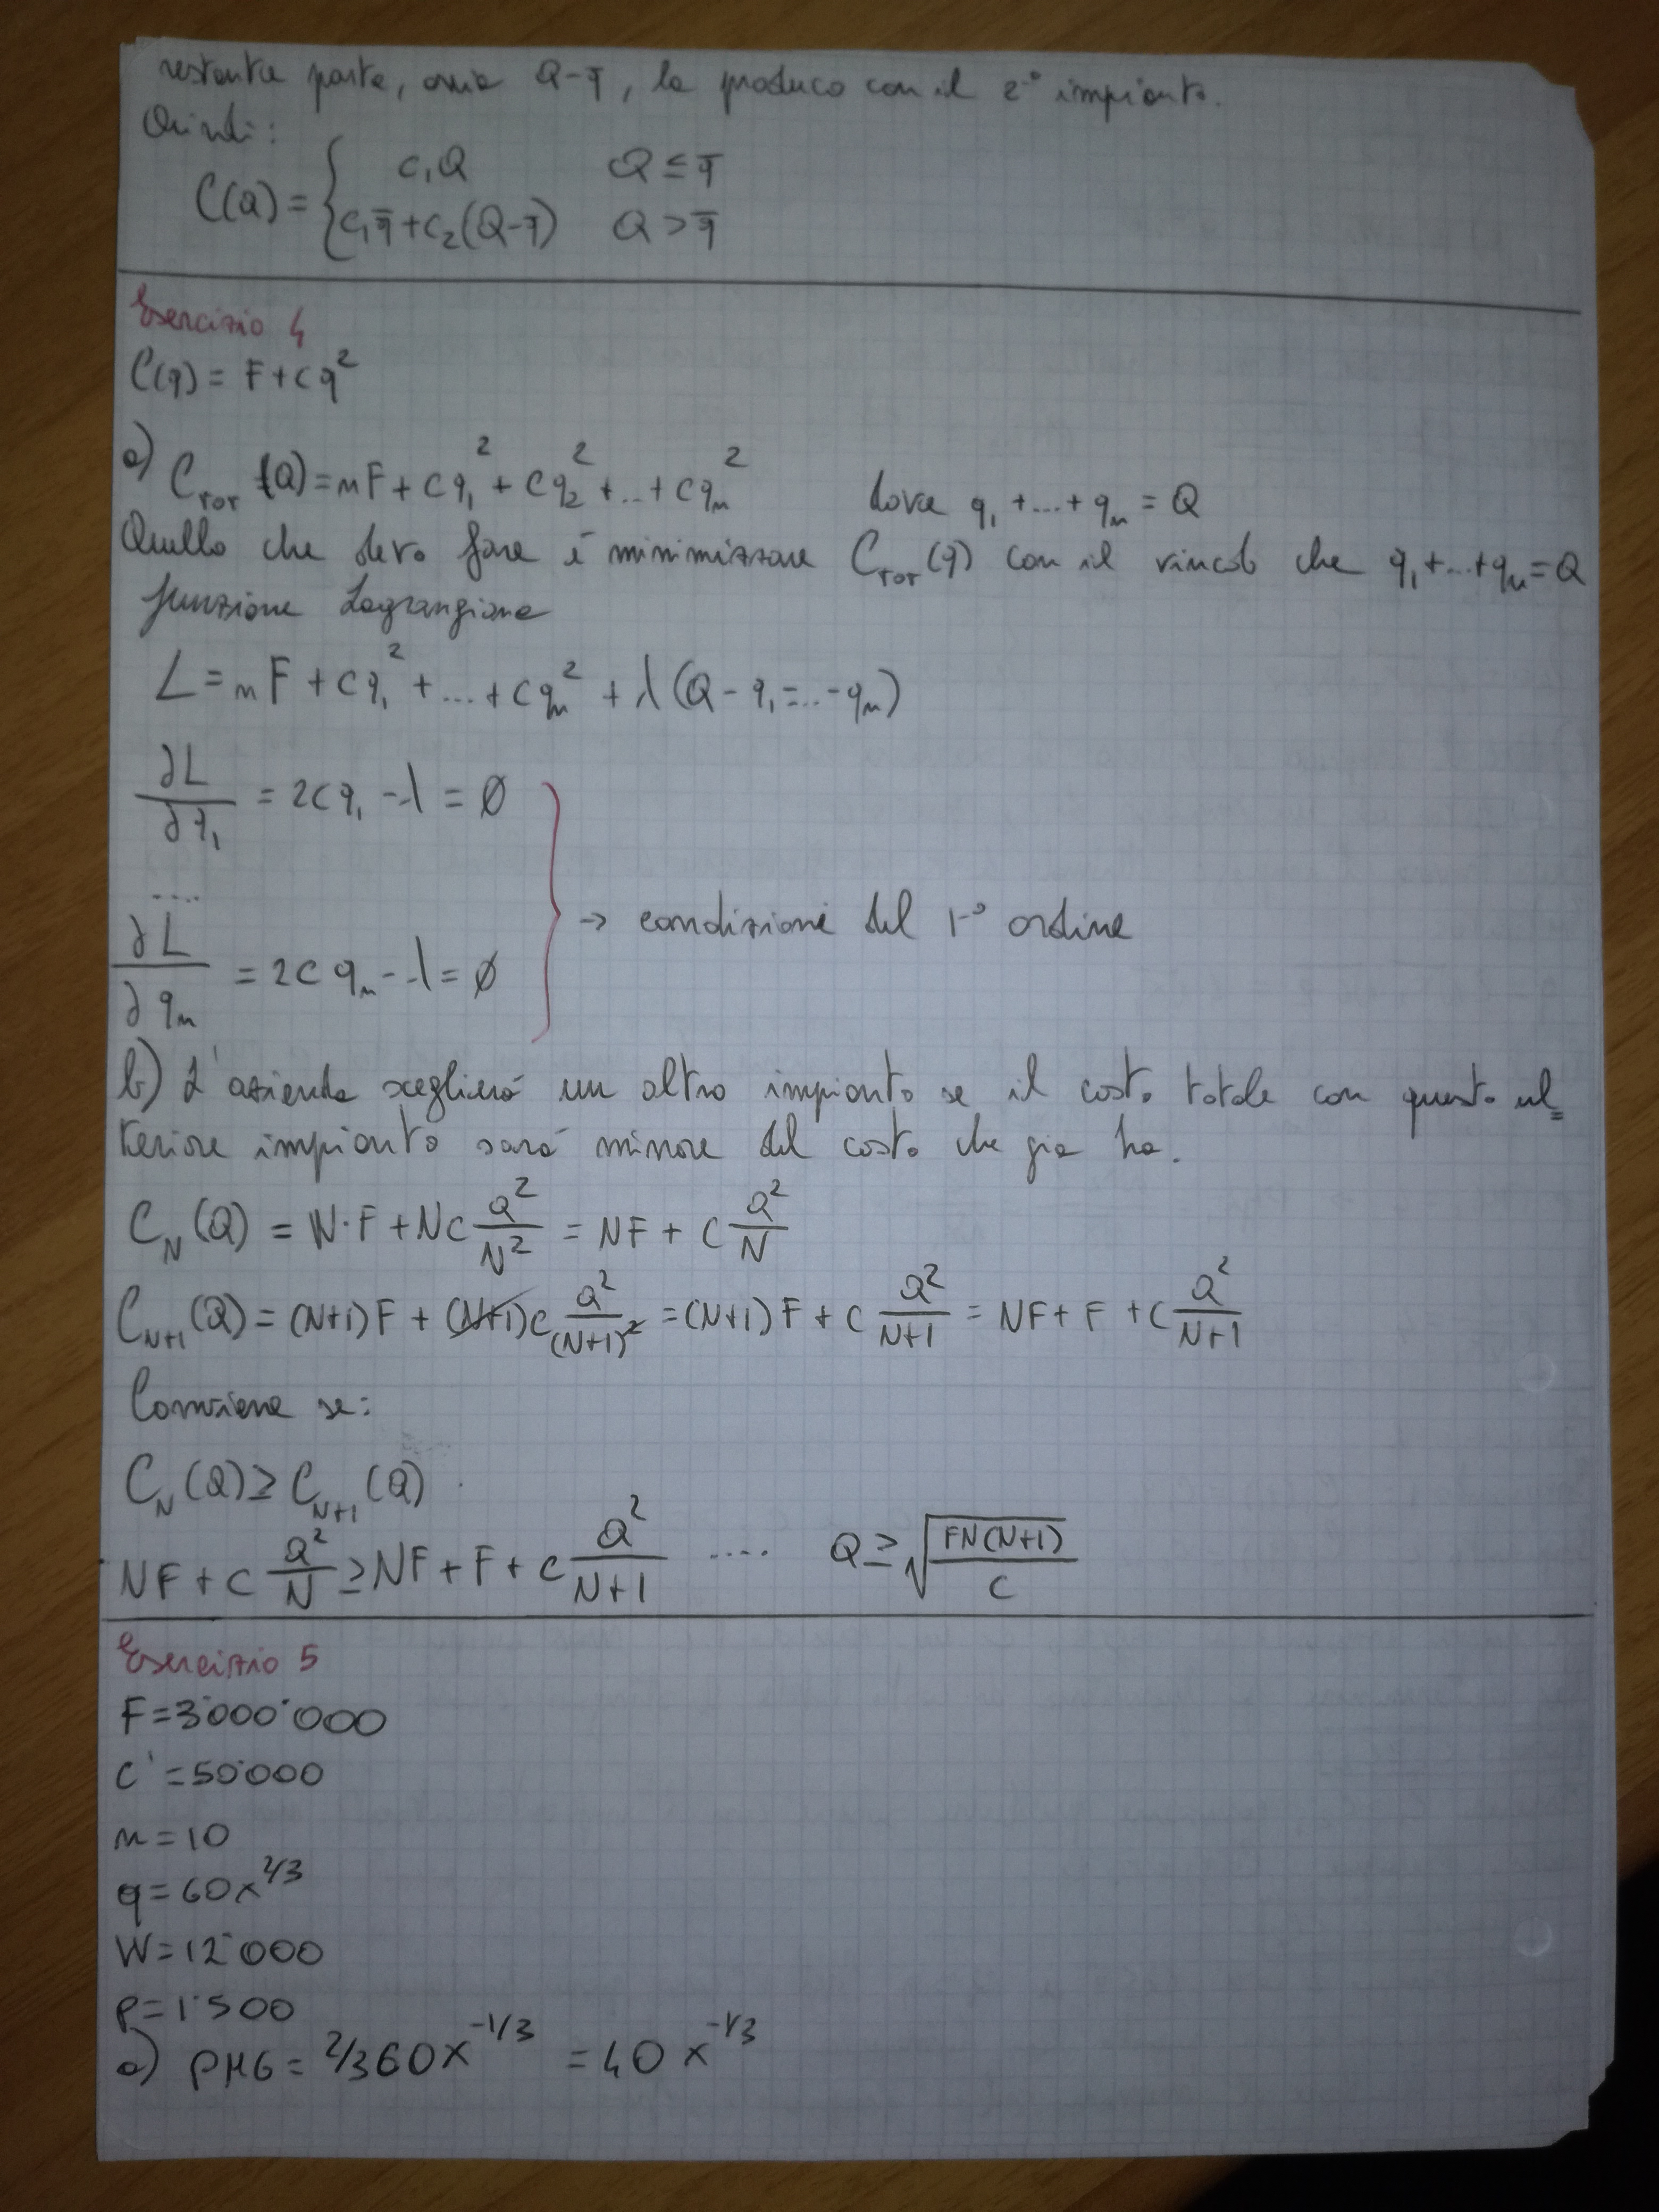 restante parte, ovvia Q-q̄, la produco con il 2° impianto.
Quindi:
C(Q) = { c₁Q Q ≤ q̄
c₁q̄+c₂(Q-q̄) Q > q̄
Esercizio 4
C(q) = F+cq²
a) C_TOT (Q) = nF + cq₁² + cq₂² + ... + cqₙ² dove q₁ + ... + qₙ = Q
Quello che devo fare è minimizzare C_TOT(q) con il vincolo che q₁+...+qₙ=Q
funzione Lagrangiana
L = nF + cq₁² + ... + cqₙ² + λ(Q - q₁ = ... - qₙ)
∂L/∂q₁ = 2cq₁ - λ = ∅
....
→ condizioni del 1° ordine
∂L/∂qₙ = 2cqₙ - λ = ∅
b) L'azienda sceglierà un altro impianto se il costo totale con questo ul=
teriore impianto sarà minore del costo che già ha.
C_N(Q) = N·F + Nc Q²/N² = NF + c Q²/N
C_N+1(Q) = (N+1)F + (N+1)c Q²/(N+1)² = (N+1)F + c Q²/N+1 = NF + F + c Q²/N+1
Conviene se:
C_N(Q) ≥ C_N+1(Q)
NF + c Q²/N ≥ NF + F + c Q²/N+1 .... Q ≥ √FN(N+1)/c
Esercizio 5
F=3'000'000
C'=50'000
n=10
q=60x^2/3
W=12'000
P=1'500
a) PMG = 2/3 60x^-1/3 = 40x^-1/3